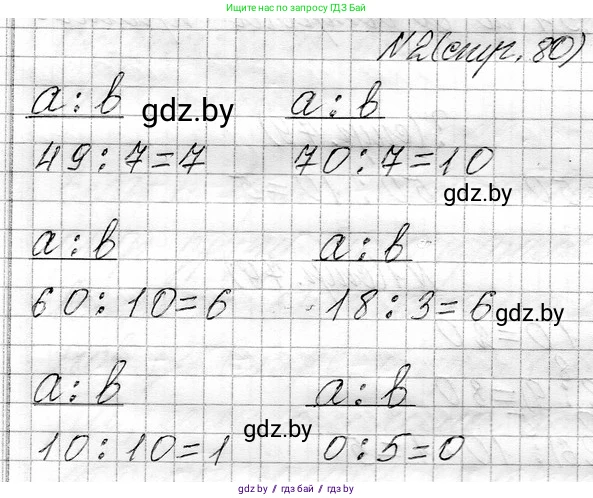 Ищите нас по запросу ГДЗ Бай
N2 (стр. 80)
a : b gdz.by a : b
49 : 7 = 7 70 : 7 = 10
gdz.by
a : b a : b
60 : 10 = 6 18 : 3 = 6 gdz.by
a : b a : b
gdz.by
10 : 10 = 1 0 : 5 = 0
gdz.by / гдз бай / gdz bai